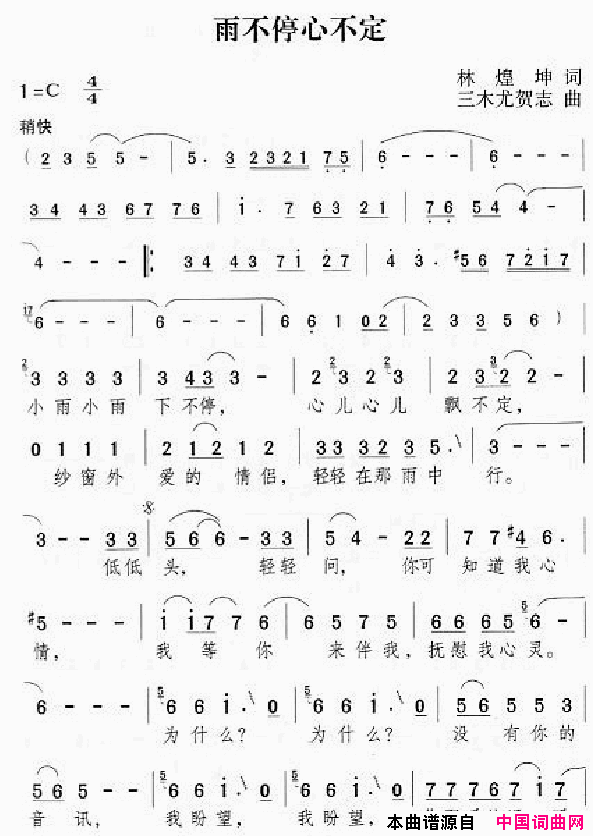 雨不停心不定
林煌坤 词
1=C 4/4
三木尤贺志 曲
稍快
( 2 3 5 5 - | 5. 3 2321 75 | 6 - - - | 6 - - -
34 43 67 76 | i. 7 63 21 | 76 54 4 -
4 - - - |: 34 43 7i 27 | 4 3. #56 72i7
6 - - - | 6 - - - | 6 6 1 02 | 2 3 5 6 )
3 3 3 3 | 3 43 3 - | 2 3 2 3 | 2 32 2 -
小雨小雨 下不停, 心儿心儿 飘不定,
0 1 1 1 | 2 12 1 2 | 33 32 23 5. | 3 - - -
纱窗外 爱的 情侣, 轻轻在那雨中 行。
3 - - 33 | 56 6 - 33 | 5 4 - 22 | 7 7 #4 6.
低低 头, 轻轻 问, 你可 知道我心
#5 - - - | i i7 7 6 | 6 5 7 5 | 66 65 6 -
情, 我等你 来伴我, 抚慰我心灵。
6 - - - | 6 6 i. 0 | 6 6 i. 0 | 56 5 5 3
为什么? 为什么? 没有你的
56 5 - - | 6 6 i. 0 | 6 6 i. 0 | 77 76 7 i
音讯, 我盼望, 我盼望,
本曲谱源自 中国词曲网